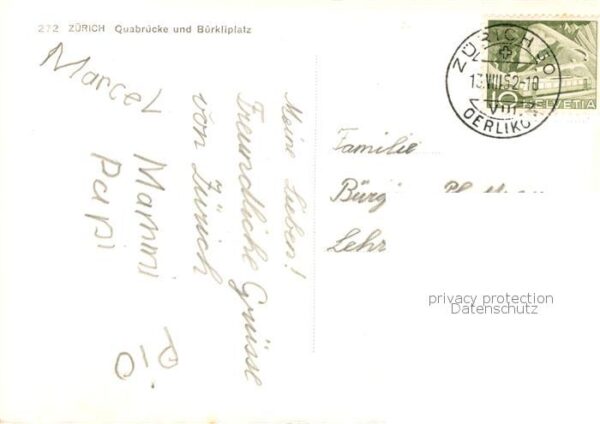 272 ZÜRICH Quabrücke und Bürkliplatz
Marcel
Mammi
Papi
Pio
Meine Lieben!
Freundliche Grüsse
von Zürich
ZÜRICH 50
13.VIII.52-18
OERLIKON
10 HELVETIA
Familie
Bürg
Lehr
privacy protection
Datenschutz